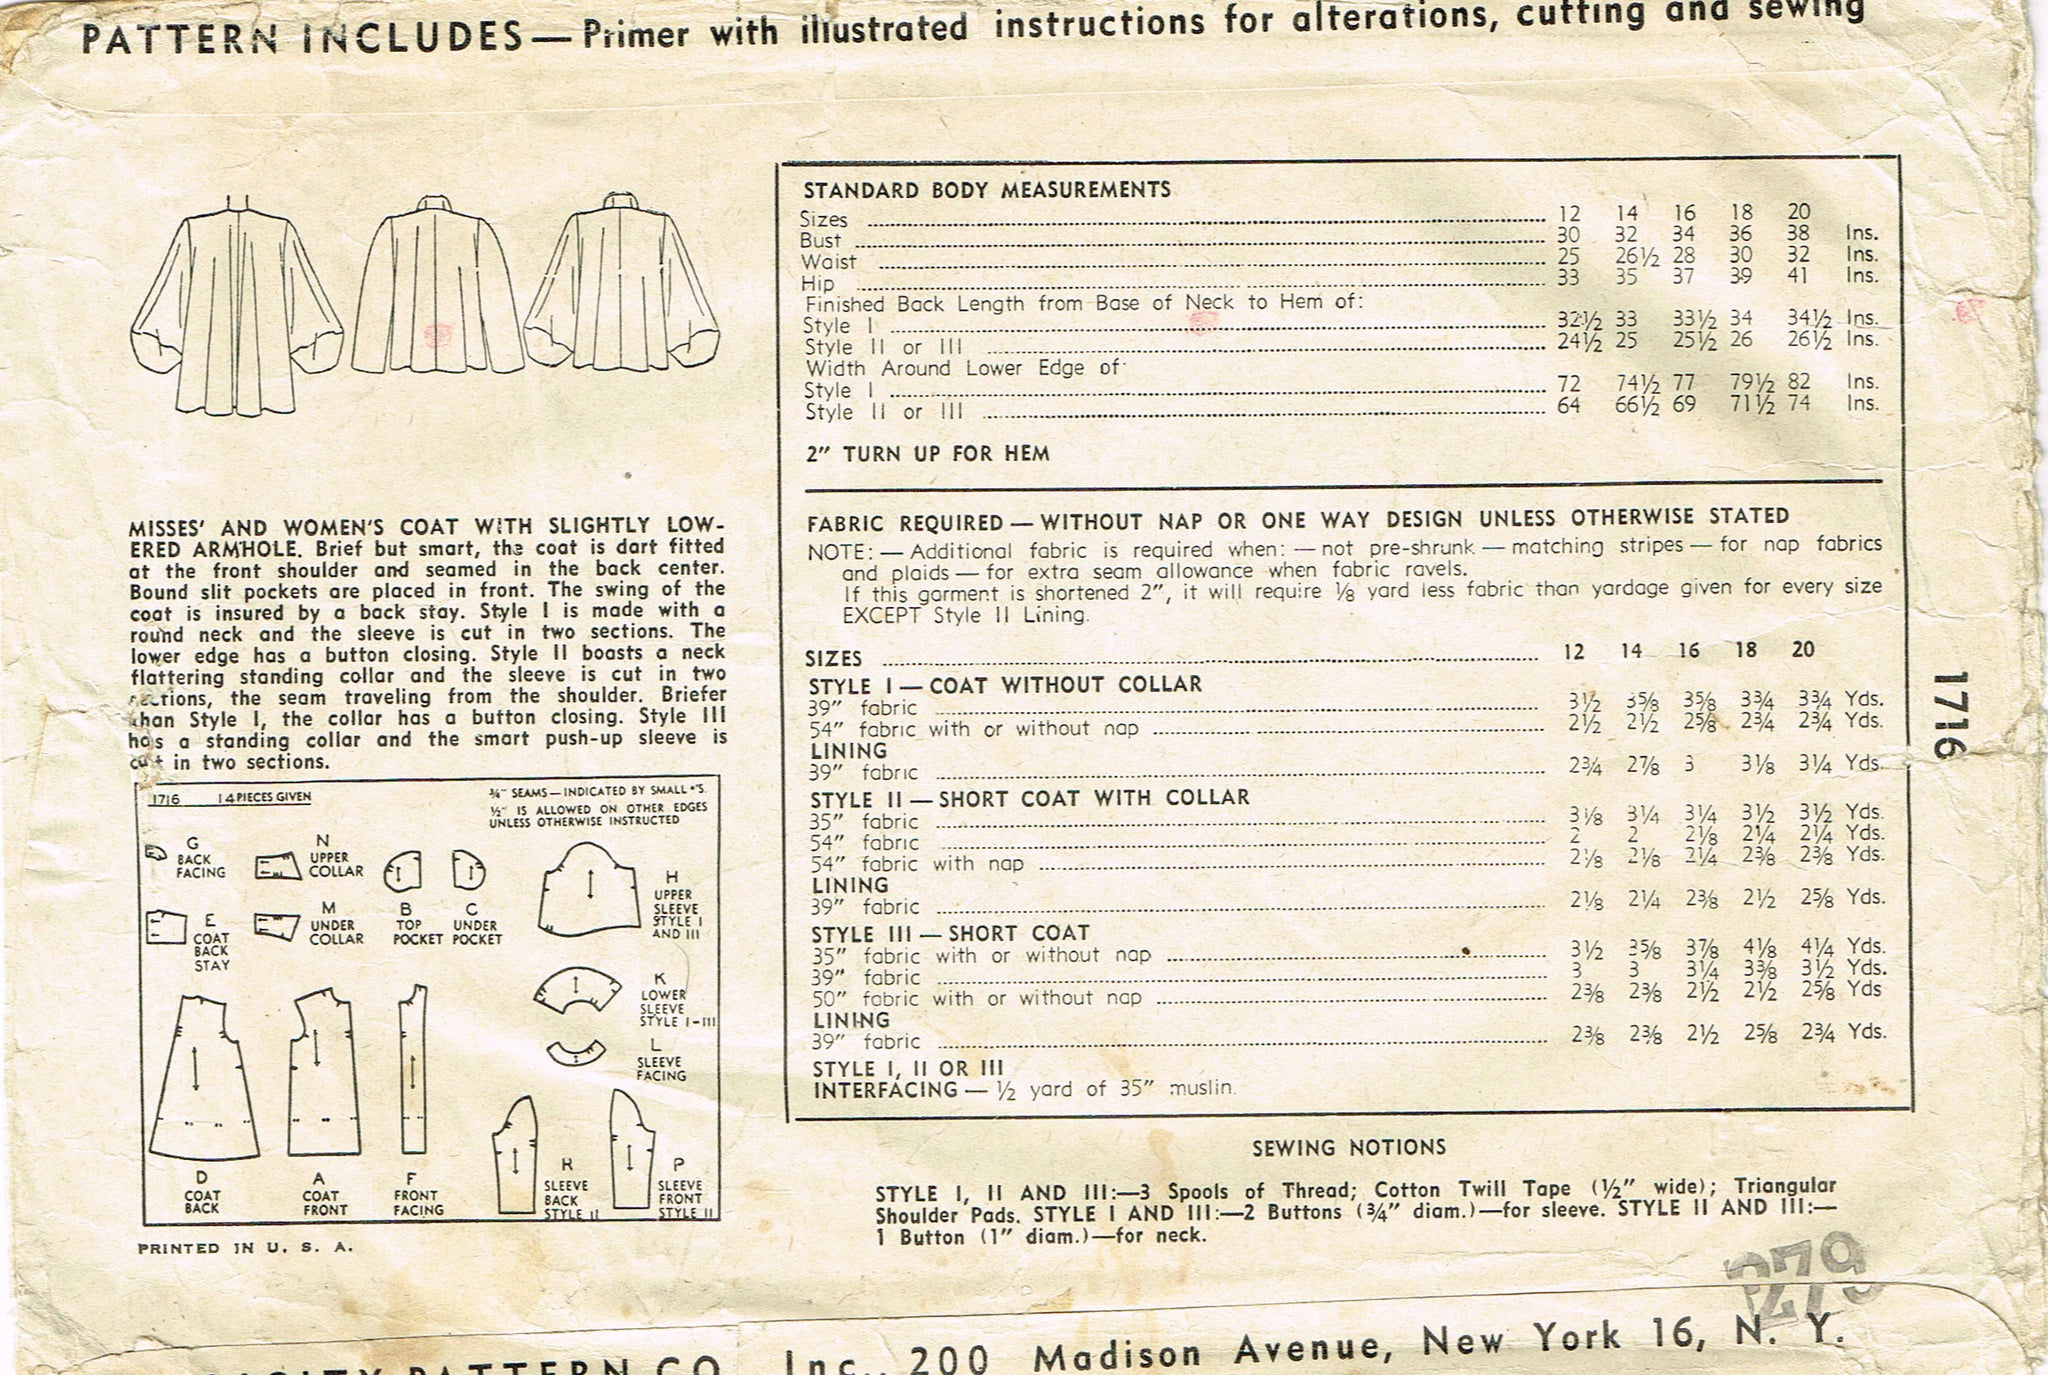 PATTERN INCLUDES — Primer with illustrated instructions for alterations, cutting and sewing
MISSES' AND WOMEN'S COAT WITH SLIGHTLY LOW-
ERED ARMHOLE. Brief but smart, the coat is dart fitted
at the front shoulder and seamed in the back center.
Bound slit pockets are placed in front. The swing of the
coat is insured by a back stay. Style I is made with a
round neck and the sleeve is cut in two sections. The
lower edge has a button closing. Style II boasts a neck
flattering standing collar and the sleeve is cut in two
sections, the seam traveling from the shoulder. Briefer
than Style I, the collar has a button closing. Style III
has a standing collar and the smart push-up sleeve is
cut in two sections.
1716 14 PIECES GIVEN
¾" SEAMS — INDICATED BY SMALL •'S.
½" IS ALLOWED ON OTHER EDGES
UNLESS OTHERWISE INSTRUCTED
G
BACK
FACING
N
UPPER
COLLAR
E
COAT
BACK
STAY
M
UNDER
COLLAR
B
TOP
POCKET
C
UNDER
POCKET
H
UPPER
SLEEVE
STYLE I
AND III
K
LOWER
SLEEVE
STYLE I-III
L
SLEEVE
FACING
D
COAT
BACK
A
COAT
FRONT
F
FRONT
FACING
R
SLEEVE
BACK
STYLE II
P
SLEEVE
FRONT
STYLE II
PRINTED IN U. S. A.
STANDARD BODY MEASUREMENTS
Sizes 12 14 16 18 20
Bust 30 32 34 36 38 Ins.
Waist 25 26½ 28 30 32 Ins.
Hip 33 35 37 39 41 Ins.
Finished Back Length from Base of Neck to Hem of:
Style I 32½ 33 33½ 34 34½ Ins.
Style II or III 24½ 25 25½ 26 26½ Ins.
Width Around Lower Edge of
Style I 72 74½ 77 79½ 82 Ins.
Style II or III 64 66½ 69 71½ 74 Ins.
2" TURN UP FOR HEM
FABRIC REQUIRED — WITHOUT NAP OR ONE WAY DESIGN UNLESS OTHERWISE STATED
NOTE: — Additional fabric is required when: — not pre-shrunk — matching stripes — for nap fabrics
and plaids — for extra seam allowance when fabric ravels.
If this garment is shortened 2", it will require ⅛ yard less fabric than yardage given for every size
EXCEPT Style II Lining.
SIZES 12 14 16 18 20
STYLE I — COAT WITHOUT COLLAR
39" fabric 3½ 3⅝ 3⅝ 3¾ 3¾ Yds.
54" fabric with or without nap 2½ 2½ 2⅝ 2¾ 2¾ Yds.
LINING
39" fabric 2¾ 2⅞ 3 3⅛ 3¼ Yds.
STYLE II — SHORT COAT WITH COLLAR
35" fabric 3⅛ 3¼ 3¼ 3½ 3½ Yds.
54" fabric 2 2 2⅛ 2¼ 2¼ Yds.
54" fabric with nap 2⅛ 2⅛ 2¼ 2⅜ 2⅜ Yds.
LINING
39" fabric 2⅛ 2¼ 2⅜ 2½ 2⅝ Yds.
STYLE III — SHORT COAT
35" fabric with or without nap 3½ 3⅝ 3⅞ 4⅛ 4¼ Yds.
39" fabric 3 3 3¼ 3⅜ 3½ Yds.
50" fabric with or without nap 2⅜ 2⅜ 2½ 2½ 2⅝ Yds
LINING
39" fabric 2⅜ 2⅜ 2½ 2⅝ 2¾ Yds.
STYLE I, II OR III
INTERFACING — ½ yard of 35" muslin.
1716
SEWING NOTIONS
STYLE I, II AND III:—3 Spools of Thread; Cotton Twill Tape (½" wide); Triangular
Shoulder Pads. STYLE I AND III:—2 Buttons (¾" diam.)—for sleeve. STYLE II AND III:—
1 Button (1" diam.)—for neck.
279
PATTERN CO. Inc., 200 Madison Avenue, New York 16, N. Y.